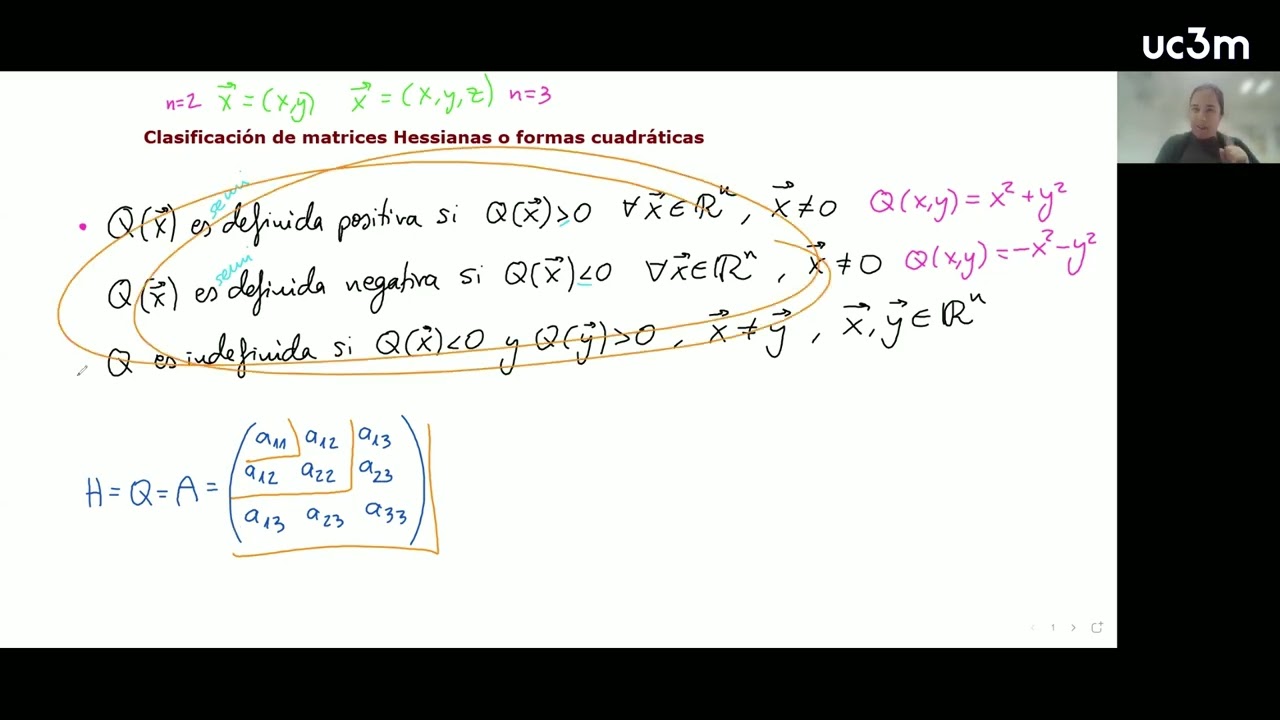 uc3m
n=2 x⃗ = (x,y) x⃗ = (x,y,z) n=3
Clasificación de matrices Hessianas o formas cuadráticas
• Q(x⃗) es semi definida positiva si Q(x⃗) ≥ 0 ∀x⃗ ∈ ℝⁿ, x⃗ ≠ 0 Q(x,y) = x² + y²
Q(x⃗) es semi definida negativa si Q(x⃗) ≤ 0 ∀x⃗ ∈ ℝⁿ, x⃗ ≠ 0 Q(x,y) = -x² - y²
Q es indefinida si Q(x⃗) < 0 y Q(y⃗) > 0, x⃗ ≠ y⃗, x⃗, y⃗ ∈ ℝⁿ
a₁₁ a₁₂ a₁₃
H = Q = A = a₁₂ a₂₂ a₂₃
a₁₃ a₂₃ a₃₃
1